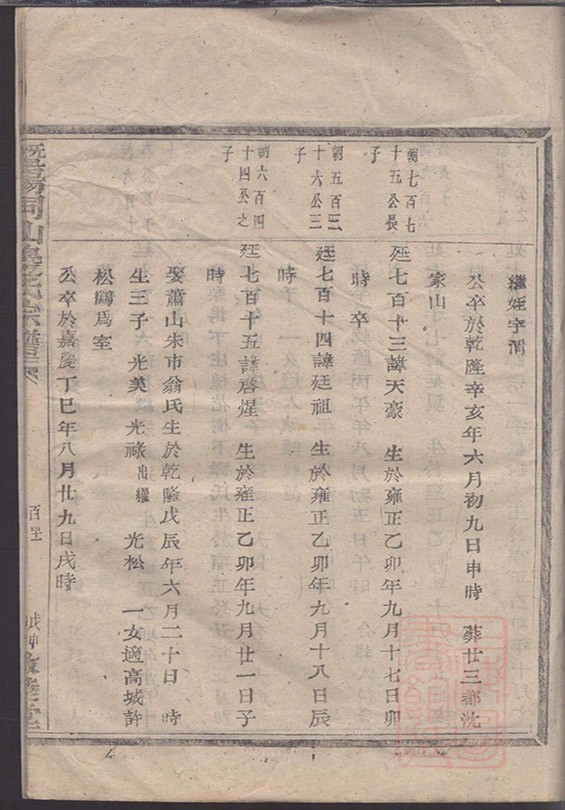 繼姪宇渭
公卒於乾隆辛亥年六月初九日申時 葬廿三都沈
家山
朝七百七
十五公長
子
廷七百十三諱天豪 生於雍正乙卯年九月十七日卯
時卒
朝五百三
十六公三
子
廷七百十四諱廷祖 生於雍正乙卯年九月十八日辰
時
朝六百四
十四公之
子
廷七百十五諱啓煋 生於雍正乙卯年九月廿一日子
時
娶蕭山朱市翁氏生於乾隆戊辰年六月二十日 時
生三子 光美 光祿出繼 光松 一女適高城許
松鶴爲室
公卒於嘉慶丁巳年八月廿九日戌時
暨陽同山 氏宗譜
戊申